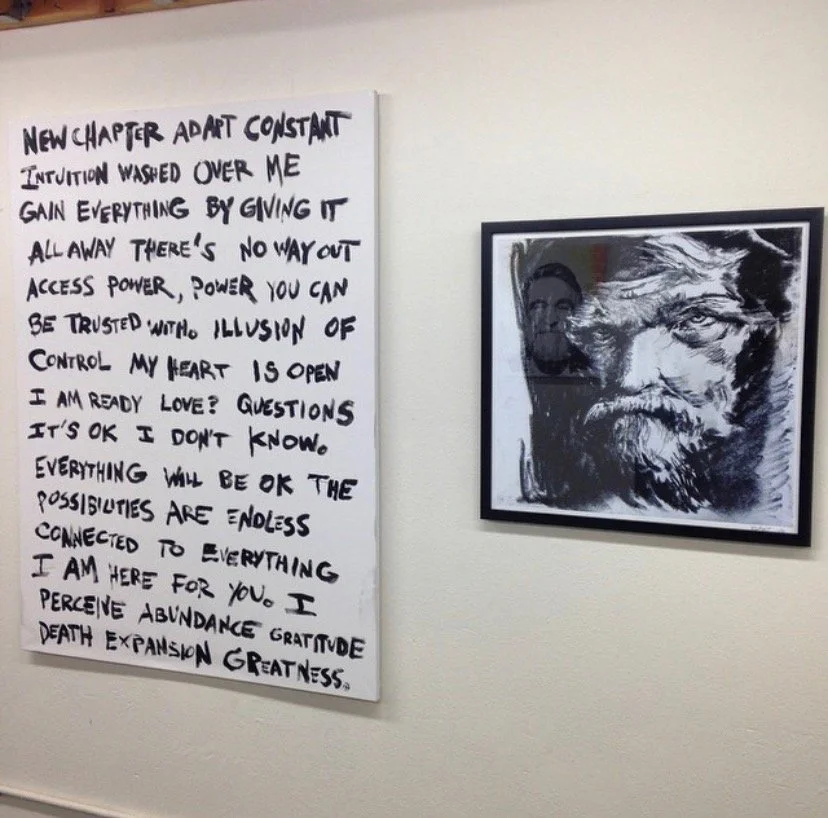 NEW CHAPTER ADAPT CONSTANT
INTUITION WASHED OVER ME
GAIN EVERYTHING BY GIVING IT
ALL AWAY THERE'S NO WAY OUT
ACCESS POWER, POWER YOU CAN
BE TRUSTED WITH. ILLUSION OF
CONTROL MY HEART IS OPEN
I AM READY LOVE? QUESTIONS
IT'S OK I DON'T KNOW.
EVERYTHING WILL BE OK THE
POSSIBILITIES ARE ENDLESS
CONNECTED TO EVERYTHING
I AM HERE FOR YOU. I
PERCEIVE ABUNDANCE GRATITUDE
DEATH EXPANSION GREATNESS.